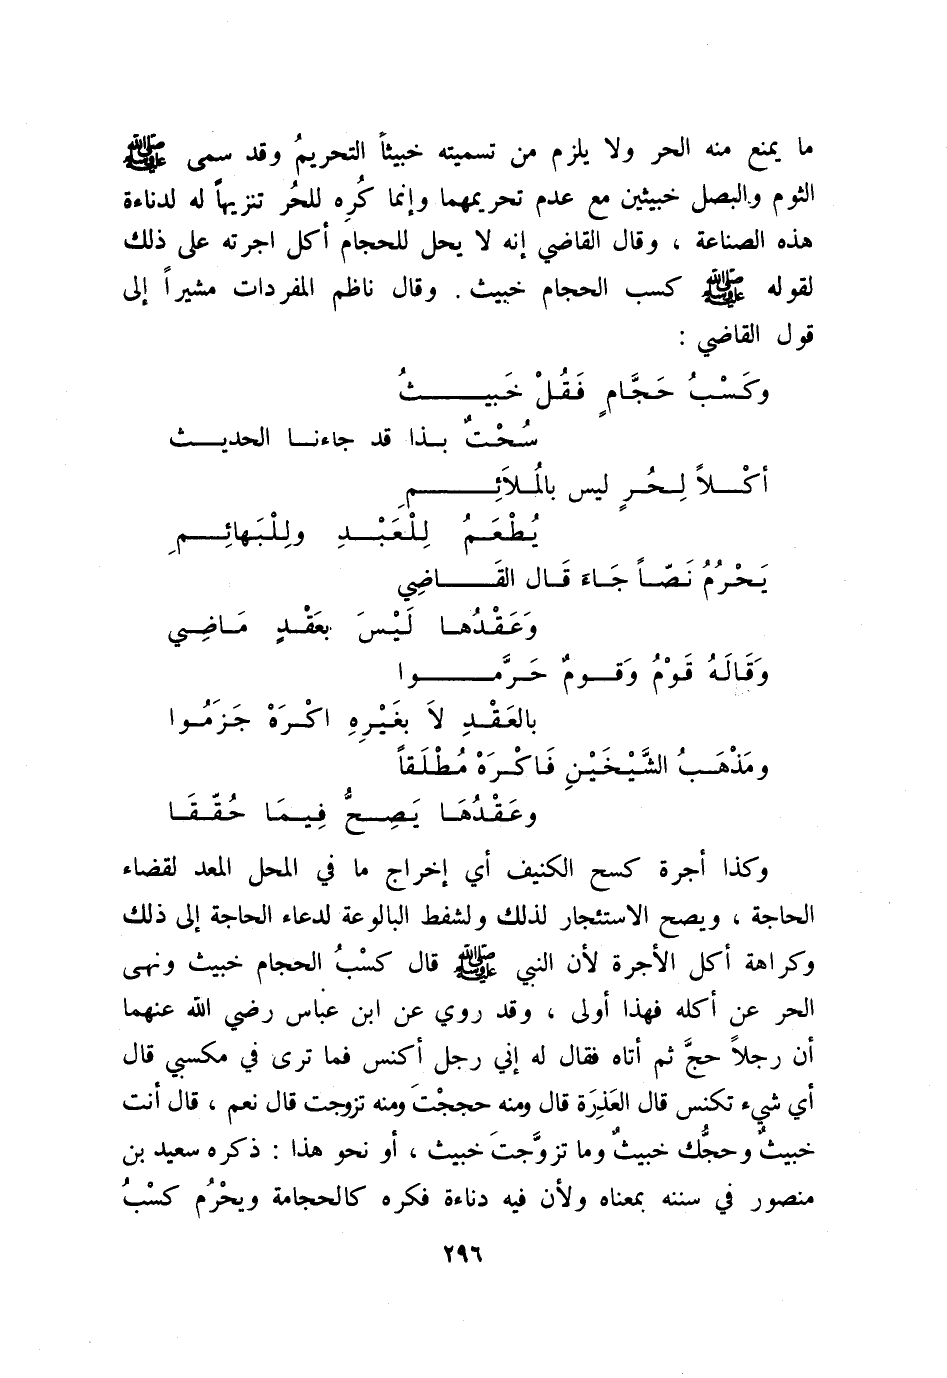 ما يمنع منه الحر ولا يلزم من تسميته خبيثاً التحريمُ وقد سمى ﷺ
الثوم والبصل خبيثين مع عدم تحريمهما وإنما كُره للحُر تنزيهاً له لدناءة
هذه الصناعة ، وقال القاضي إنه لا يحل للحجام أكل اجرته على ذلك
لقوله ﷺ كسب الحجام خبيث . وقال ناظم المفردات مشيراً إلى
قول القاضي :
وكَسْبُ حَجَّامٍ فَقُلْ خَبيـــــــثُ
سُحْتٌ بــذا قد جاءنــا الحديـــث
أكْــــلاً لِــحُــرٍ ليس بالُمــلاَئِــــــــمِ
يُطْعَــمُ لِلْعَبْــــدِ ولِلْبَهائِــــمِ
يَـحْـرُمُ نَـصّــاً جَــاءَ قَـال القَــــــاضِي
وَعَـقْـدُهــا لَـيْـسَ بعَقْـــدٍ مَــاضِــي
وَقَـالَـهُ قَـوْمُ وَقــــومٌ حَـرَّمُــــــــوا
بالعَـقْـــدِ لاَ بغَيْـرِهِ اكْــرَهْ جَـزَمُــوا
ومَذْهَــبُ الشَّيْـخَيْـنِ فَـاكْـرَهْ مُطْلَـقاً
وعَـقْـدُهَــا يَـصِــحُّ فِـيـمَــا حُـقِّـقَــا
وكذا أجرة كسح الكنيف أي إخراج ما في المحل المعد لقضاء
الحاجة ، ويصح الاستئجار لذلك ولشفط البالوعة لدعاء الحاجة إلى ذلك
وكراهة أكل الأجرة لأن النبي ﷺ قال كسْبُ الحجام خبيث ونهى
الحر عن أكله فهذا أولى ، وقد روي عن ابن عباس رضي الله عنهما
أن رجلاً حجَّ ثم أتاه فقال له إني رجل أكنس فما ترى في مكسبي قال
أي شيء تكنس قال العَذِرَة قال ومنه حججْتَ ومنه تزوجت قال نعم ، قال أنت
خبيثٌ وحجُّك خبيثٌ وما تزوَّجتَ خبيث ، أو نحو هذا : ذكره سعيد بن
منصور في سننه بمعناه ولأن فيه دناءة فكره كالحجامة ويحْرُم كسْبُ
٢٩٦